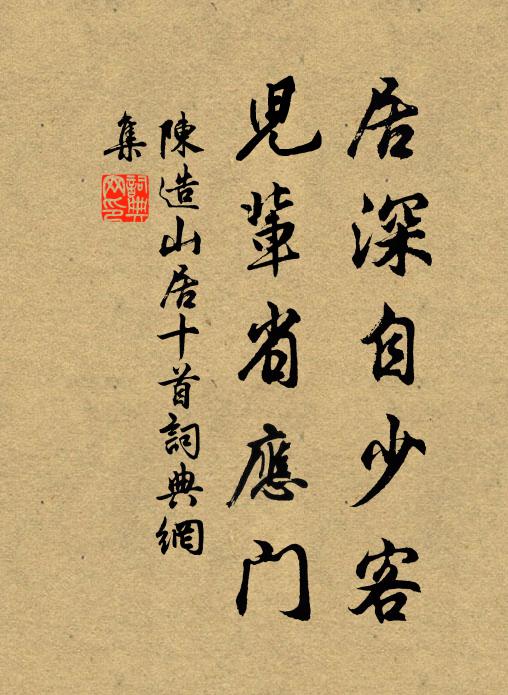 居深自少客
兒輩省應門
陳造山居十首詞典網
集
詞典網印